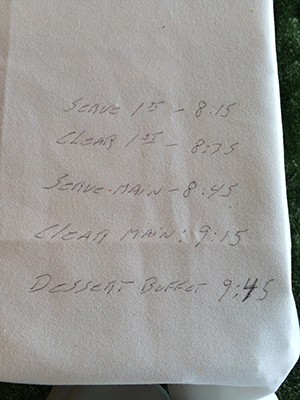 SERVE 1ST - 8:15
CLEAR 1ST - 8:35
SERVE MAIN - 8:45
CLEAR MAIN: 9:15
DESSERT BUFFET 9:45